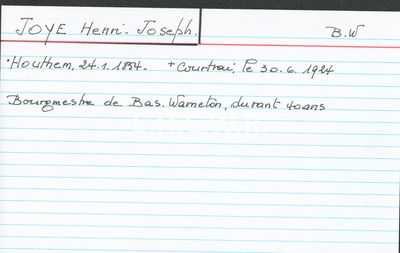 JOYE Henri. Joseph.
B.W
°Houthem, 24.1.1854. +Courtrai, le 30.6.1924
Bourgmestre de Bas. Warneton, durant 40ans